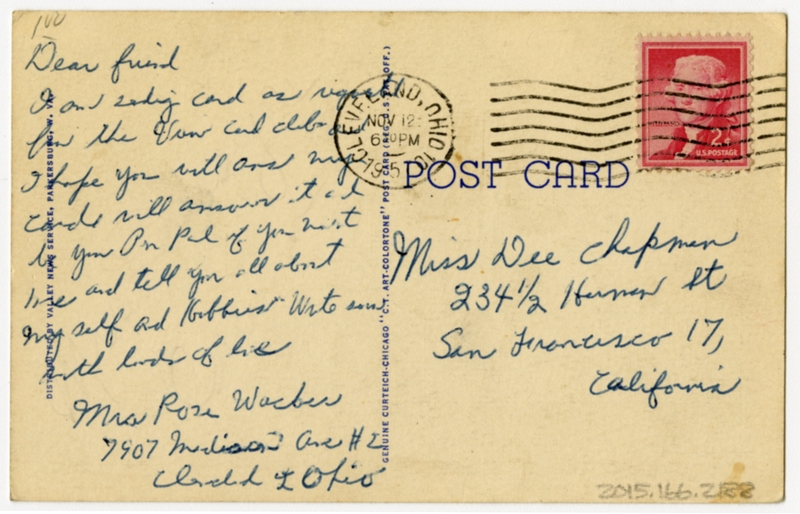 Dear friend
I am sending card as
for the View Card club
I hope you will ans my
card will answer it at
be your Pen Pal if you want
me and tell you all about
my self and Hobbies Write soon
with lots of
Mrs Rose
7907 Madison Ave #2
Ohio
DISTRIBUTED BY VALLEY NEWS SERVICE, PARKERSBURG, W. VA.
GENUINE CURTEICH-CHICAGO "C.T. ART-COLORTONE" POST CARD (REG. U.S. PAT. OFF.)
CLEVELAND, OHIO
NOV 12
6 PM
2¢
U.S. POSTAGE
POST CARD
Miss Dee Chapman
234 1/2 St
San Francisco 17,
California
2015.166.2188